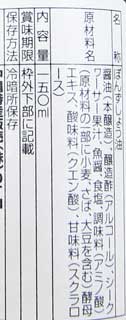 名称 ぽんずしょう油
原材料名 醤油(本醸造)、醸造酢、アルコール、シーク
ワーサー果汁、魚醤、食塩、調味料(アミノ酸)
(原材料の一部に小麦、さば、大豆を含む)酵母
エキス、酸味料(クエン酸)、甘味料(スクラロ
ース)
内容量 一五〇ml
賞味期限 枠外下部に記載
保存方法 冷暗所保存